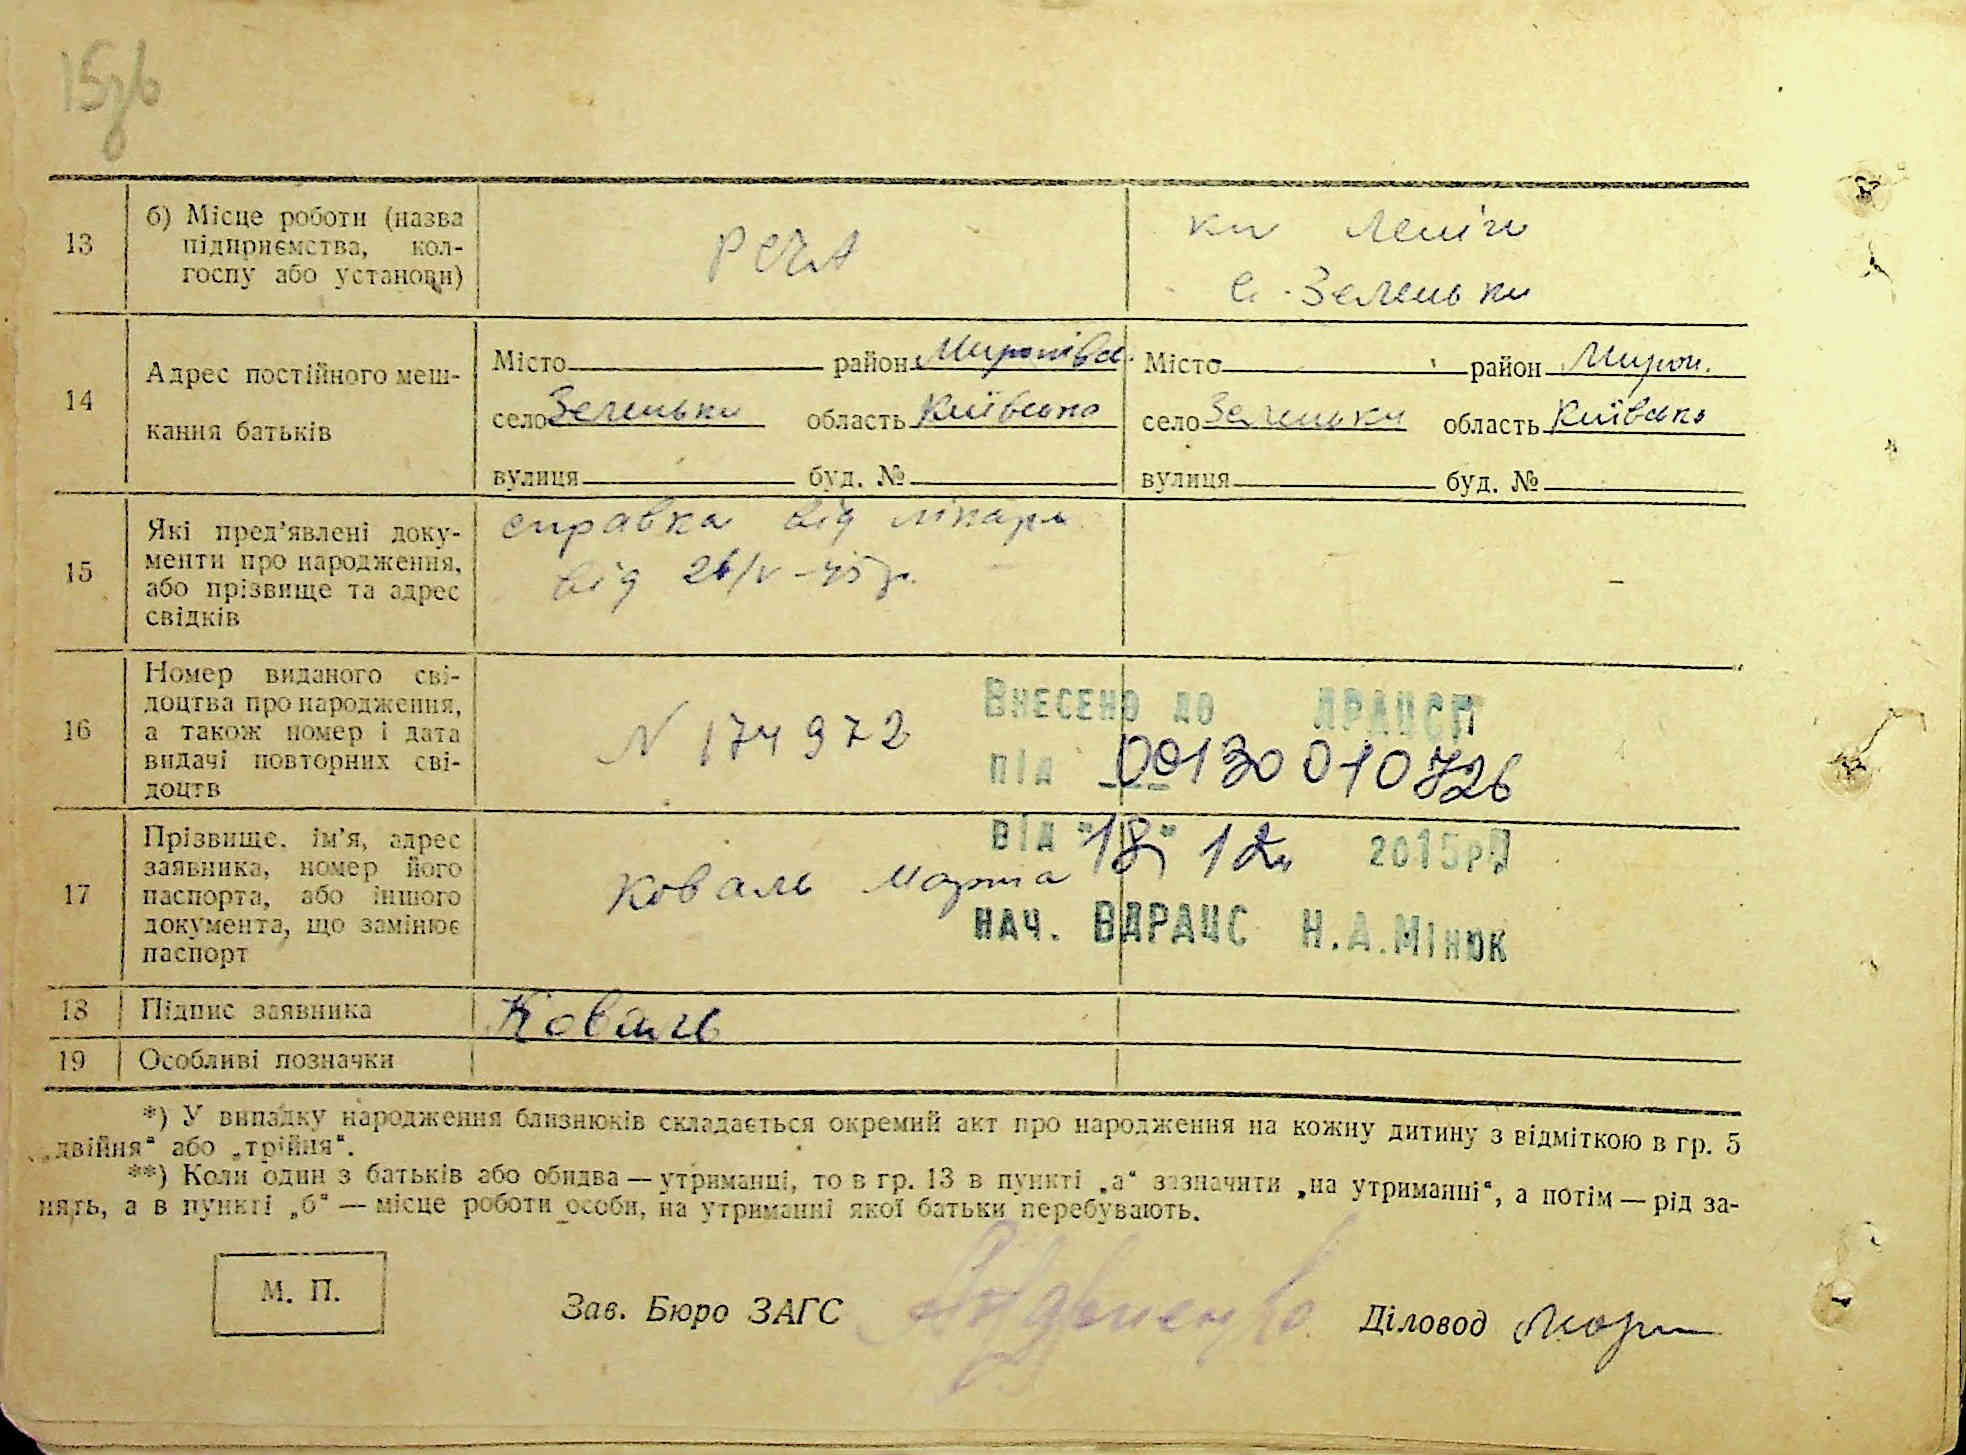 15зв
13 б) Місце роботи (назва
підприємства, кол-
госпу або установи)
РСЧА
кп Леніна
с. Зеленьки
14 Адрес постійного меш-
кання батьків
Місто район Миронівсь. Місто район Мирон.
село Зеленьки область Київська село Зеленьки область Київська
вулиця буд. № вулиця буд. №
15 Які пред'явлені доку-
менти про народження,
або прізвище та адрес
свідків
справка від лікаря
від 26/V-45 р.
16 Номер виданого сві-
доцтва про народження,
а також номер і дата
видачі повторних сві-
доцтв
N 174972
Внесено до ДРАЦСГ
під 00130010726
від "18" 12 2015р
нач. ВДРАЦС Н.А.Мінюк
17 Прізвище, ім'я, адрес
заявника, номер його
паспорта, або іншого
документа, що замінює
паспорт
Коваль Марта
18 Підпис заявника Коваль
19 Особливі позначки
*) У випадку народження близнюків складається окремий акт про народження на кожну дитину з відміткою в гр. 5
„двійня“ або „трійня“.
**) Коли один з батьків або обидва — утриманці, то в гр. 13 в пункті „а“ зазначити „на утриманні“, а потім — рід за-
нять, а в пункті „б“ — місце роботи особи, на утриманні якої батьки перебувають.
М. П.
Зав. Бюро ЗАГС Діловод